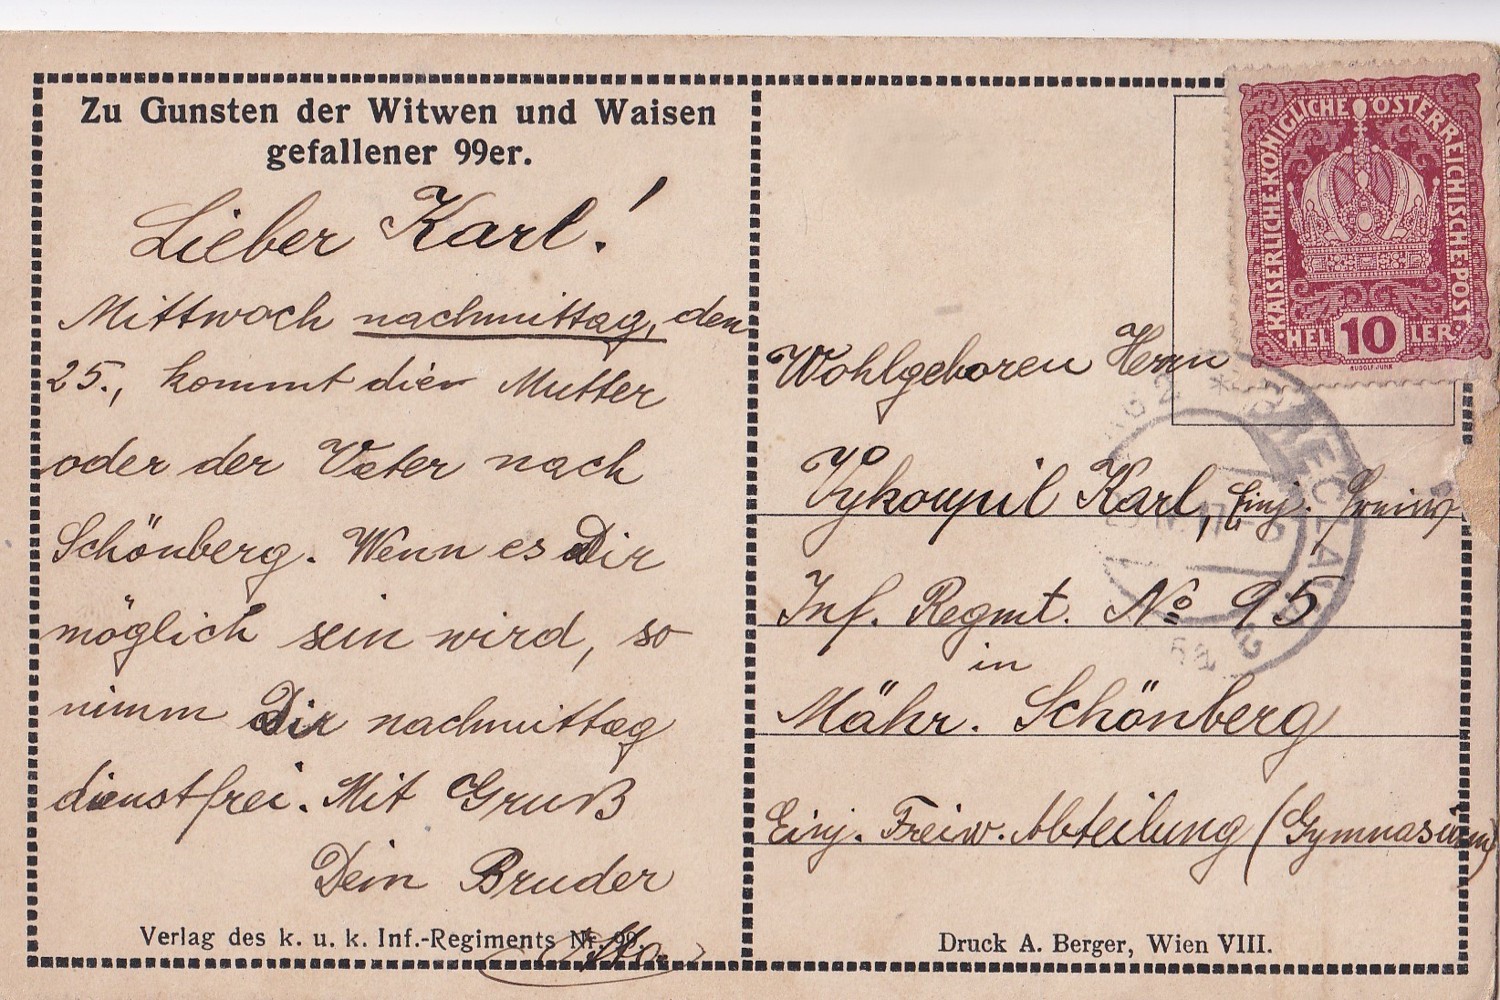 Zu Gunsten der Witwen und Waisen
gefallener 99er.
Lieber Karl!
Mittwoch nachmittag, den
25., kommt die Mutter
oder der Vater nach
Schönberg. Wenn es Dir
möglich sein wird, so
nimm Dir nachmittag
dienstfrei. Mit Gruß
Dein Bruder
Otto
Verlag des k. u. k. Inf.-Regiments Nr. 99.
KAISERLICHE·KÖNIGLICHE ÖSTERREICHISCHE·POST·
HEL 10 LER
RUDOLF JUNK
Wohlgeboren Herrn
Vykoupil Karl, Einj. Freiw
Inf. Regmt. No 95
in
Mähr. Schönberg
Einj. Freiw. Abteilung (Gymnasium)
Druck A. Berger, Wien VIII.